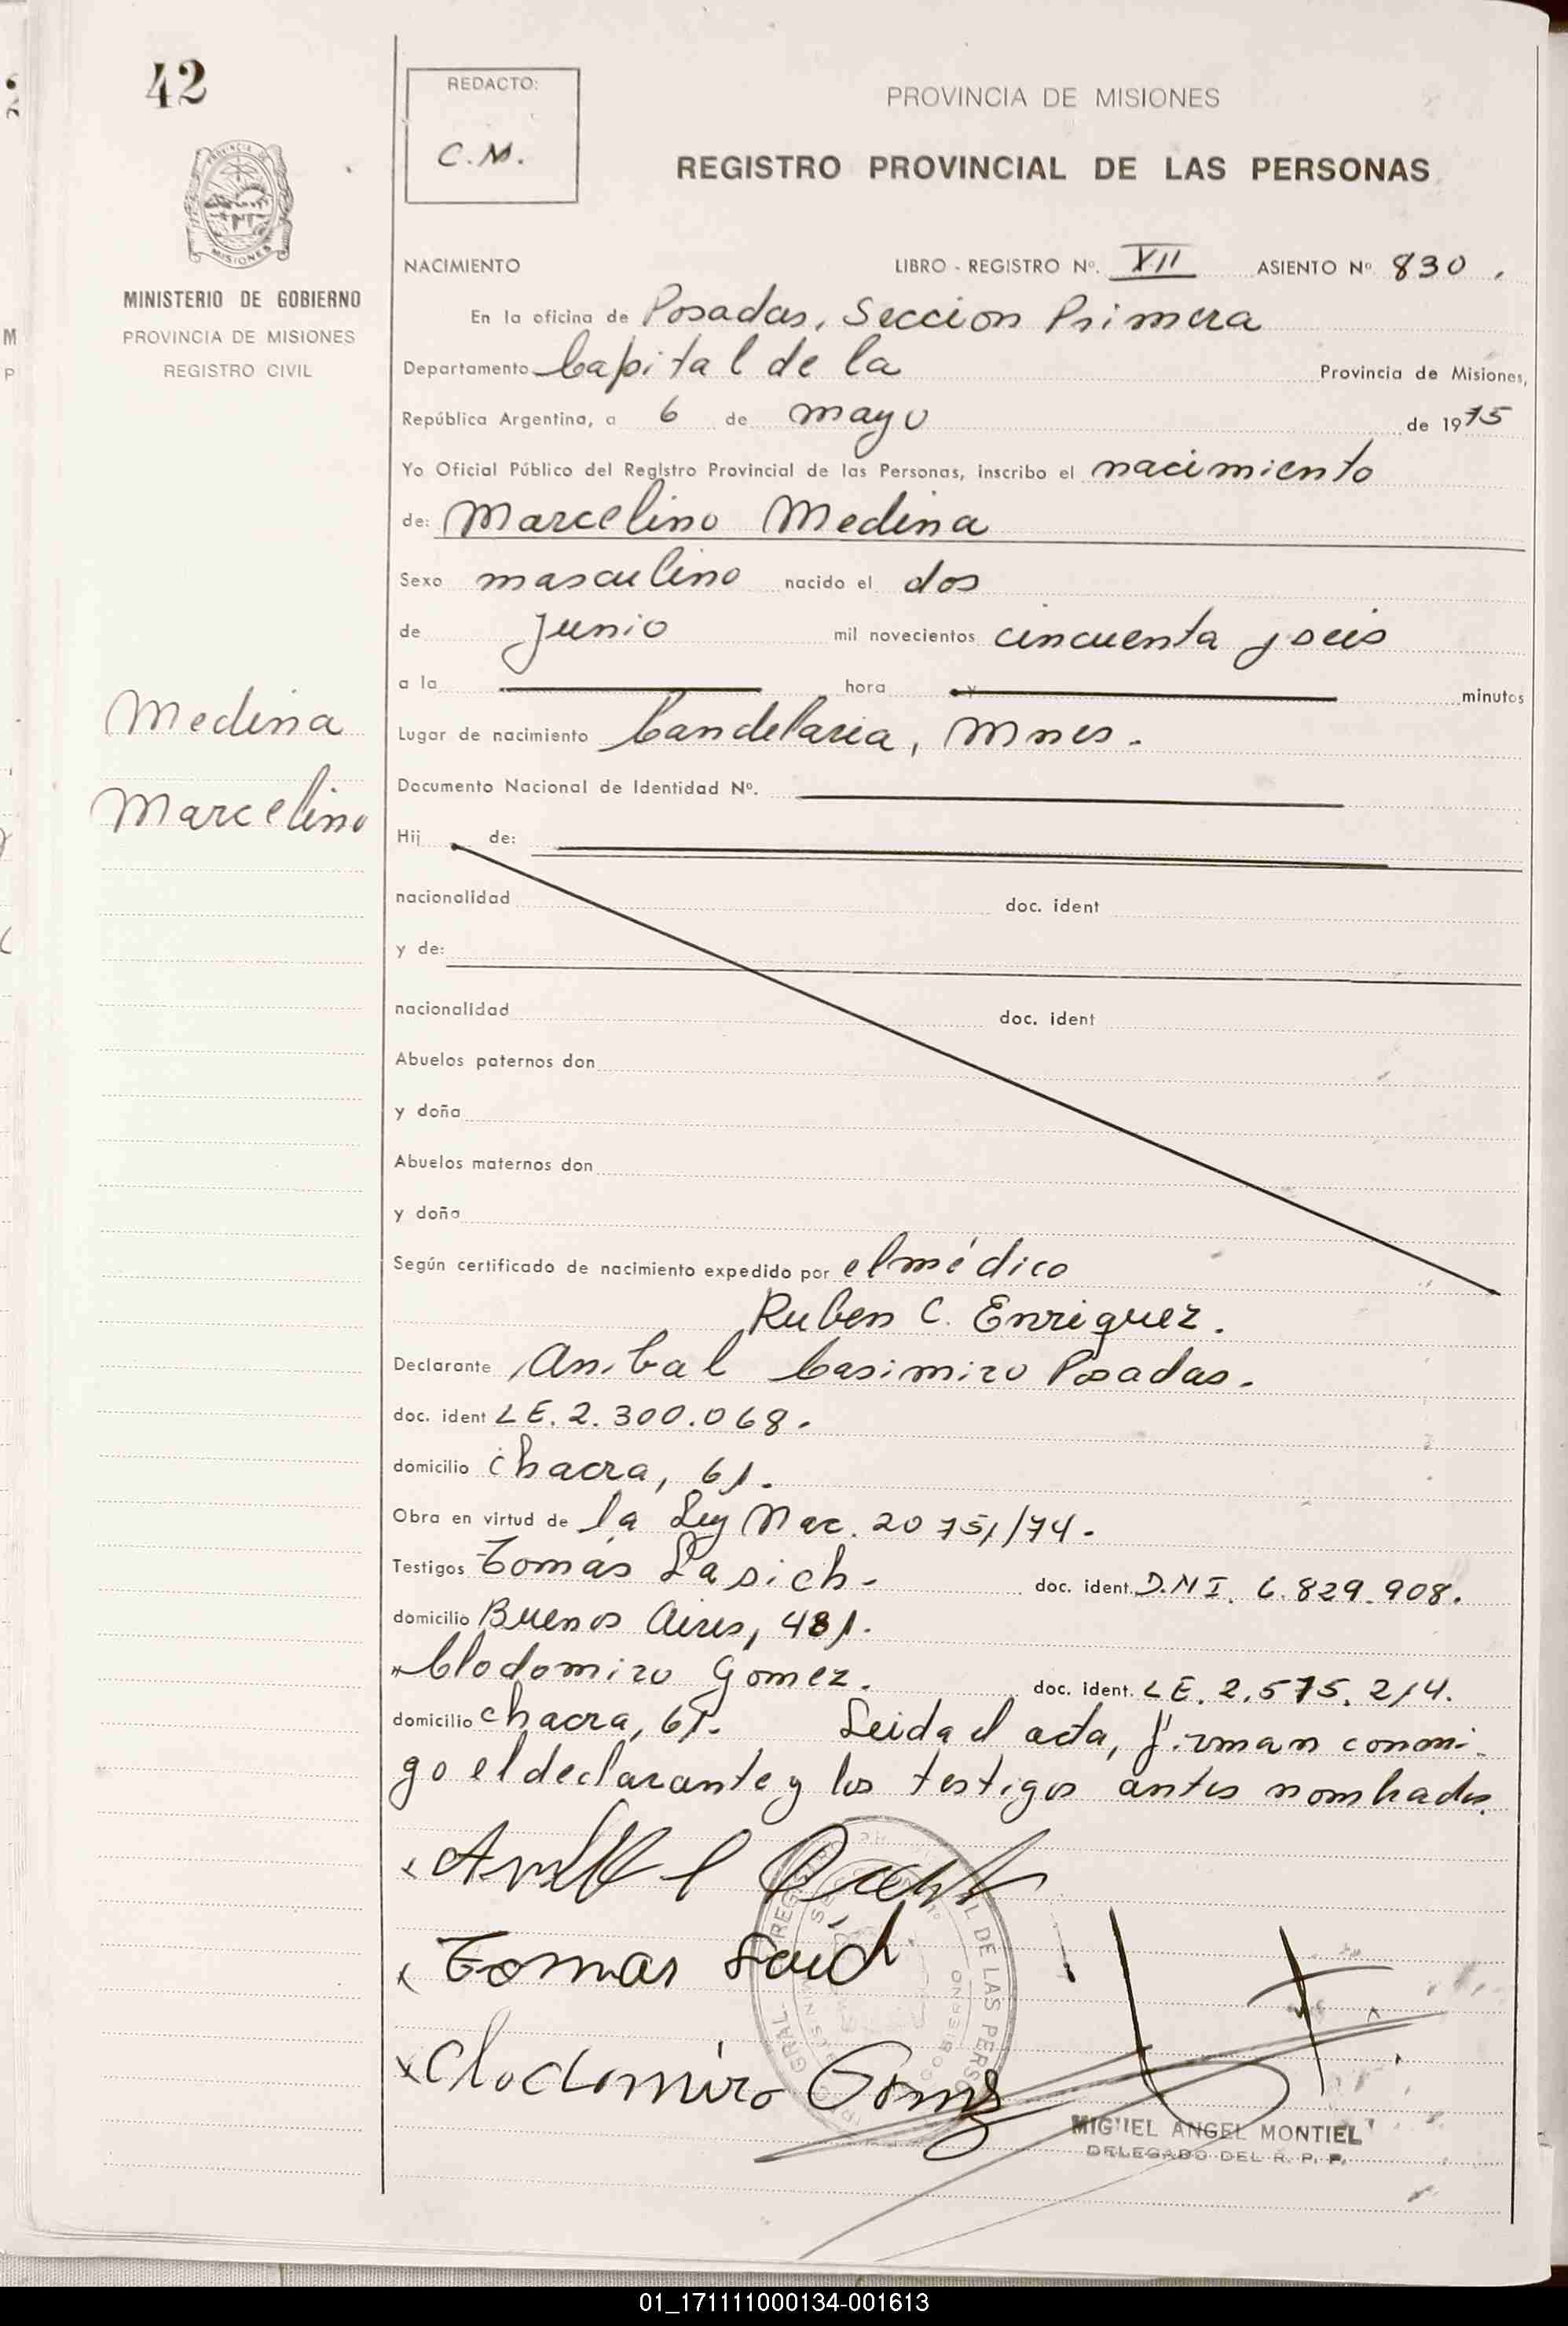 42
REDACTO:
C.M.
PROVINCIA DE MISIONES
REGISTRO PROVINCIAL DE LAS PERSONAS
MISIONES
MINISTERIO DE GOBIERNO
PROVINCIA DE MISIONES
REGISTRO CIVIL
NACIMIENTO LIBRO - REGISTRO Nº. VII ASIENTO Nº 830.
En la oficina de Posadas, Seccion Primera
Departamento Capital de la Provincia de Misiones,
República Argentina, a 6 de mayo de 1975
Yo Oficial Público del Registro Provincial de las Personas, inscribo el nacimiento
de: Marcelino Medina
Sexo masculino nacido el dos
de Junio mil novecientos cincuenta y seis
a la hora y minutos
Medina
Marcelino
Lugar de nacimiento Candelaria, Mnes.
Documento Nacional de Identidad Nº.
Hij de:
nacionalidad doc. ident
y de:
nacionalidad doc. ident
Abuelos paternos don
y doña
Abuelos maternos don
y doña
Según certificado de nacimiento expedido por el médico
Ruben C. Enriquez.
Declarante Anibal Casimiro Posadas.
doc. ident LE. 2.300.068.
domicilio chacra, 61.
Obra en virtud de la Ley Nac. 20751/74.
Testigos Tomás Lasich. doc. ident. D.N.I. 6.829.908.
domicilio Buenos Aires, 481.
Clodomiro Gomez. doc. ident. LE. 2.575.214.
domicilio chacra, 61. Leida el acta, firman conmi-
go el declarante y los testigos antes nombrados.
Tomas
Clodomiro Gomez
MIGUEL ANGEL MONTIEL
DELEGADO DEL R. P. P.
01_171111000134-001613